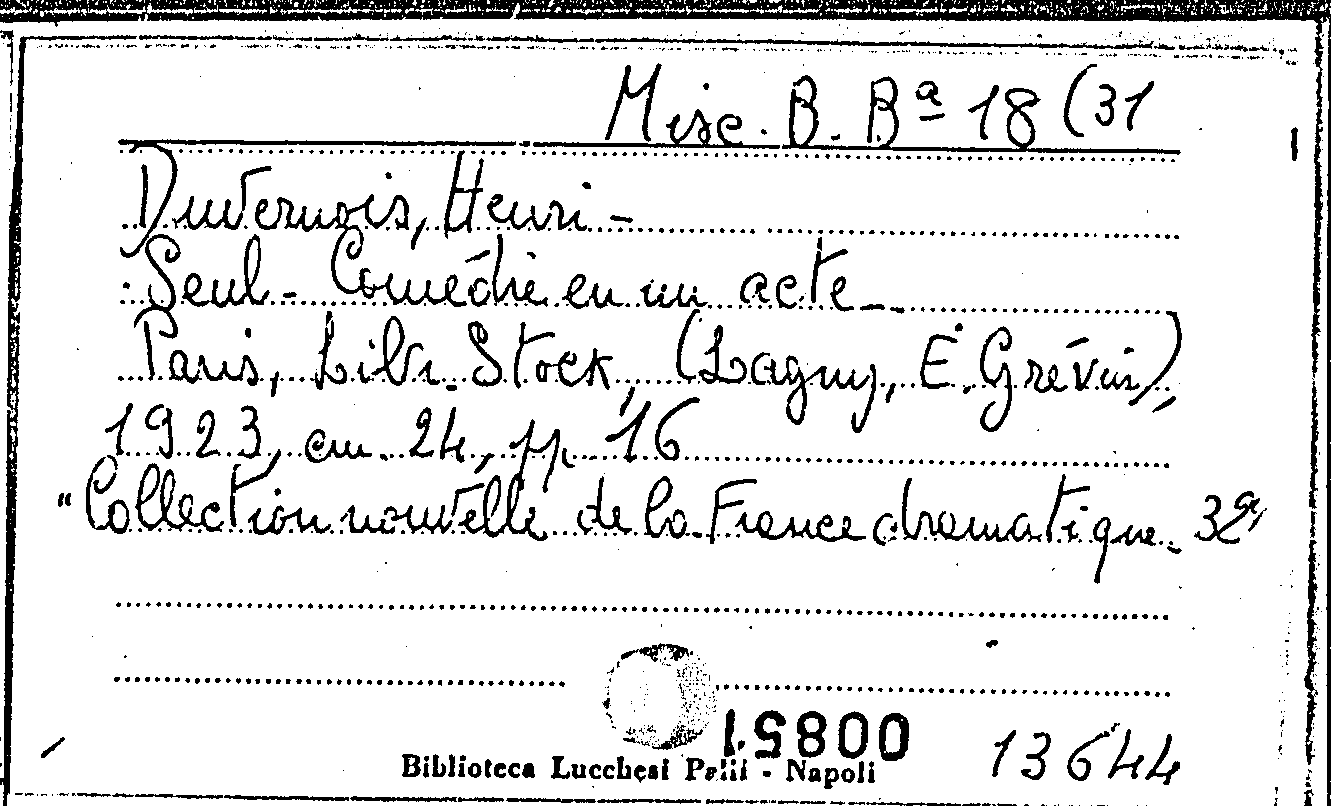 Misc. B. Bª 18 (31
Duvernois, Henri -
Seul - Comédie en un acte -
Paris, Libr. Stock, (Lagny, E. Grévin),
1923, cm. 24, pp. 16
"Collection nouvelle de la France dramatique - 32"
00851
13644
Biblioteca Lucchesi Palli - Napoli